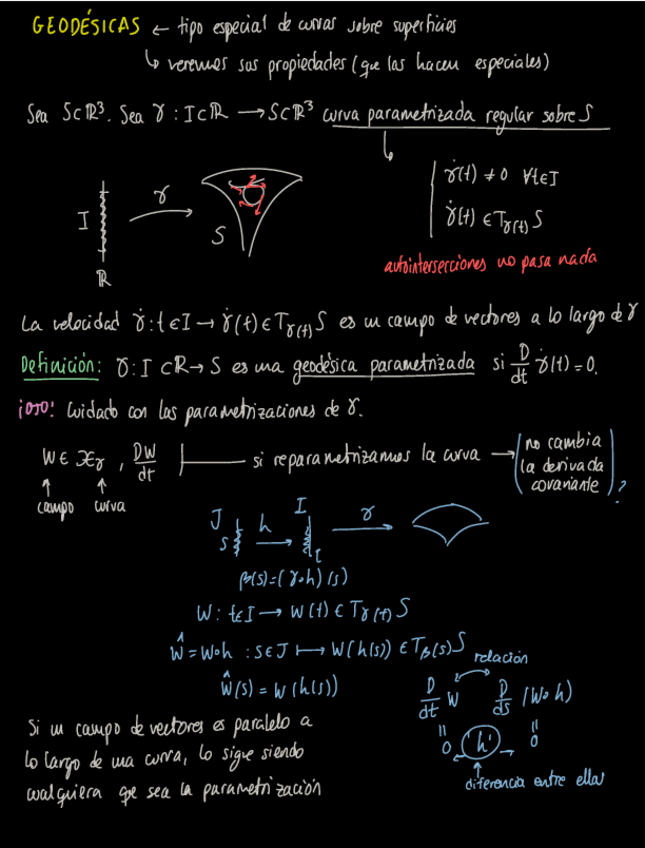 GEODÉSICAS ← tipo especial de curvas sobre superficies
↳ veremos sus propiedades (que las hacen especiales)
Sea S⊂ℝ³. Sea γ : I⊂ℝ → S⊂ℝ³ curva parametrizada regular sobre S
γ̇(t) ≠ 0 ∀t∈I
γ̇(t) ∈ T_γ(t) S
I
γ
S
ℝ
autointersecciones no pasa nada
La velocidad γ̇ : t∈I → γ̇(t) ∈ T_γ(t) S es un campo de vectores a lo largo de γ
Definición: γ : I ⊂ℝ → S es una geodésica parametrizada si D/dt γ̇(t) = 0.
¡OJO! Cuidado con las parametrizaciones de γ.
W ∈ 𝔛_γ , DW/dt
si reparametrizamos la curva → (no cambia
la derivada
covariante) ?
↑ campo ↑ curva
J h I γ
s t
β(s) = (γ∘h)(s)
W : t∈I → W(t) ∈ T_γ(t) S
Ŵ = W∘h : s∈J ↦ W(h(s)) ∈ T_β(s) S
Ŵ(s) = W(h(s))
relación
D/dt W D/ds (W∘h)
" "
0 ← h' → 0
↑
diferencia entre ellas
Si un campo de vectores es paralelo a
lo largo de una curva, lo sigue siendo
cualquiera que sea la parametrización